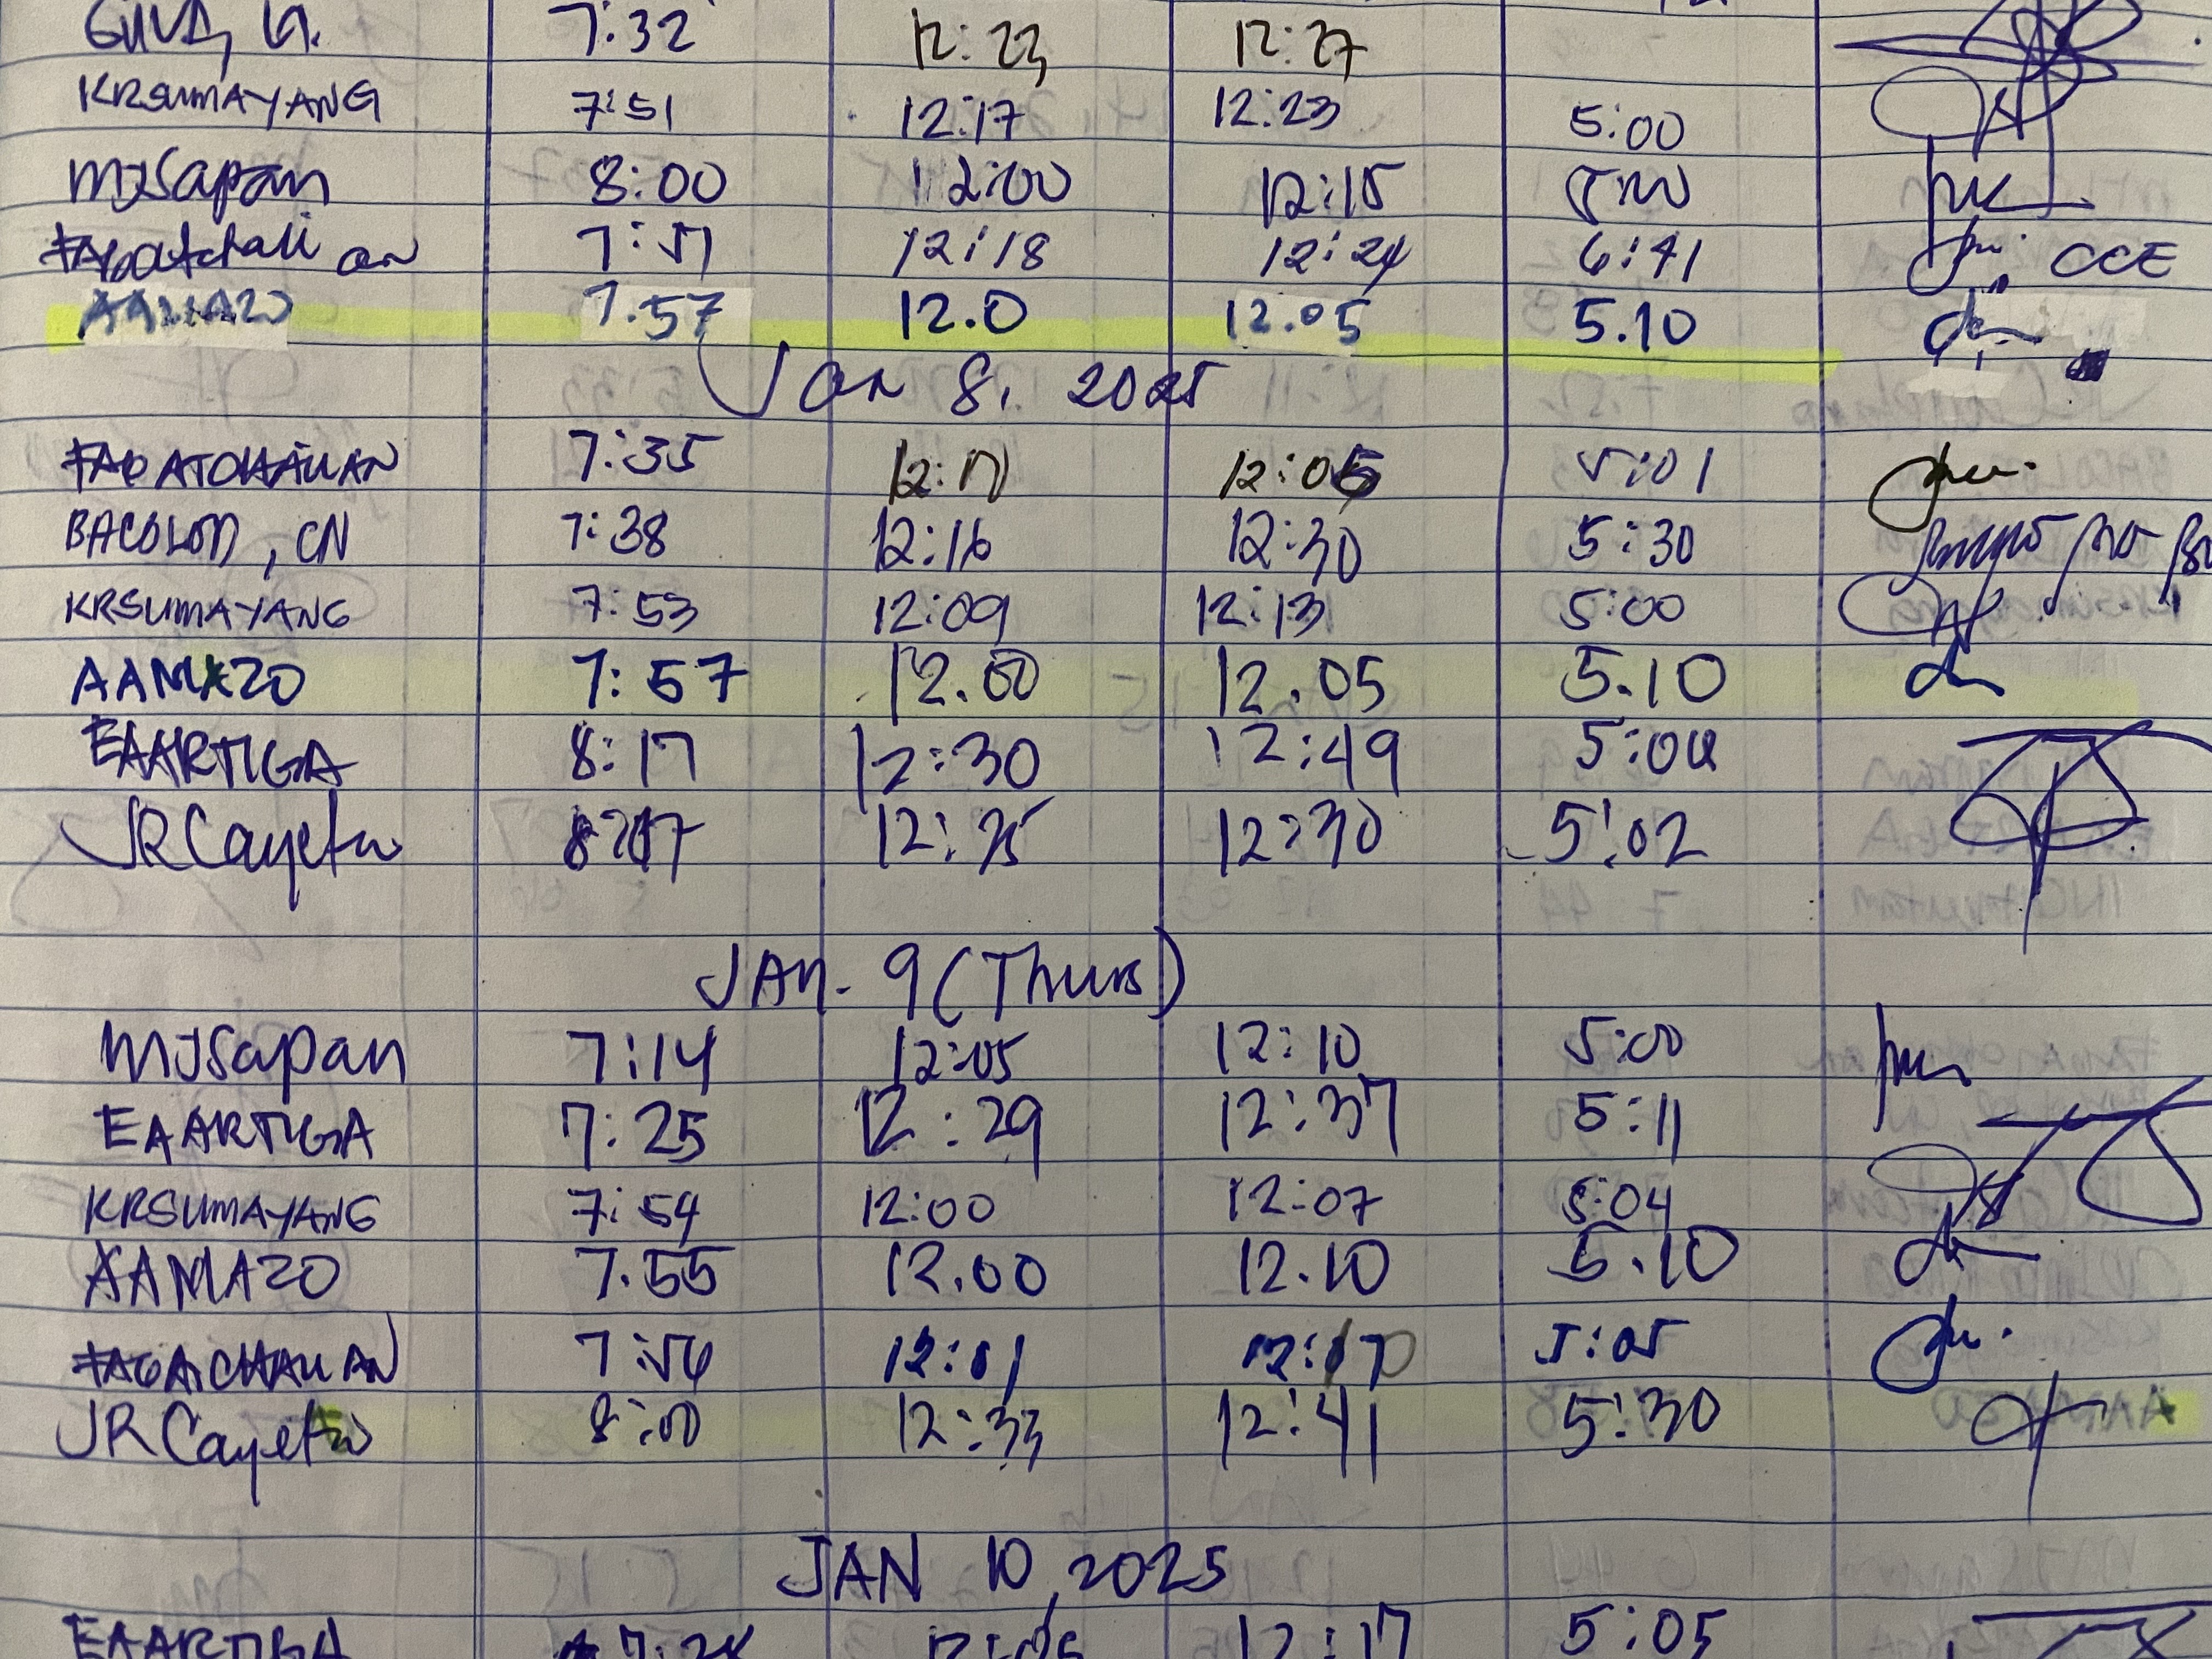 7:32 12:23 12:27
KRSUMAYANG 7:51 12:17 12:23 5:00
MJSapan 8:00 12:00 12:15
7:51 12:18 12:24 6:41 CCE
AAMAZO 7.57 12.0 12.05 5.10
Jan 8, 2025
7:35 5:01
BACOLOD, CN 7:38 12:16 12:30 5:30
KRSUMAYANG 7:53 12:09 12:13 5:00
AAMAZO 7:57 12.00 12.05 5.10
EAARTIGA 8:17 12:30 12:49
JR Cayeta 12:30 5:02
JAN. 9 (Thurs)
MJSapan 7:14 12:05 12:10 5:00
EAARTIGA 7:25 12:29 12:37 5:11
KRSUMAYANG 7:54 12:00 12:07 5:04
AAMAZO 7.55 12.00 12.10 5.10
12:01 5:05
JR Cayeta 8:00 12:33 12:41 5:30
JAN 10, 2025
EAARTIGA 12:17 5:05